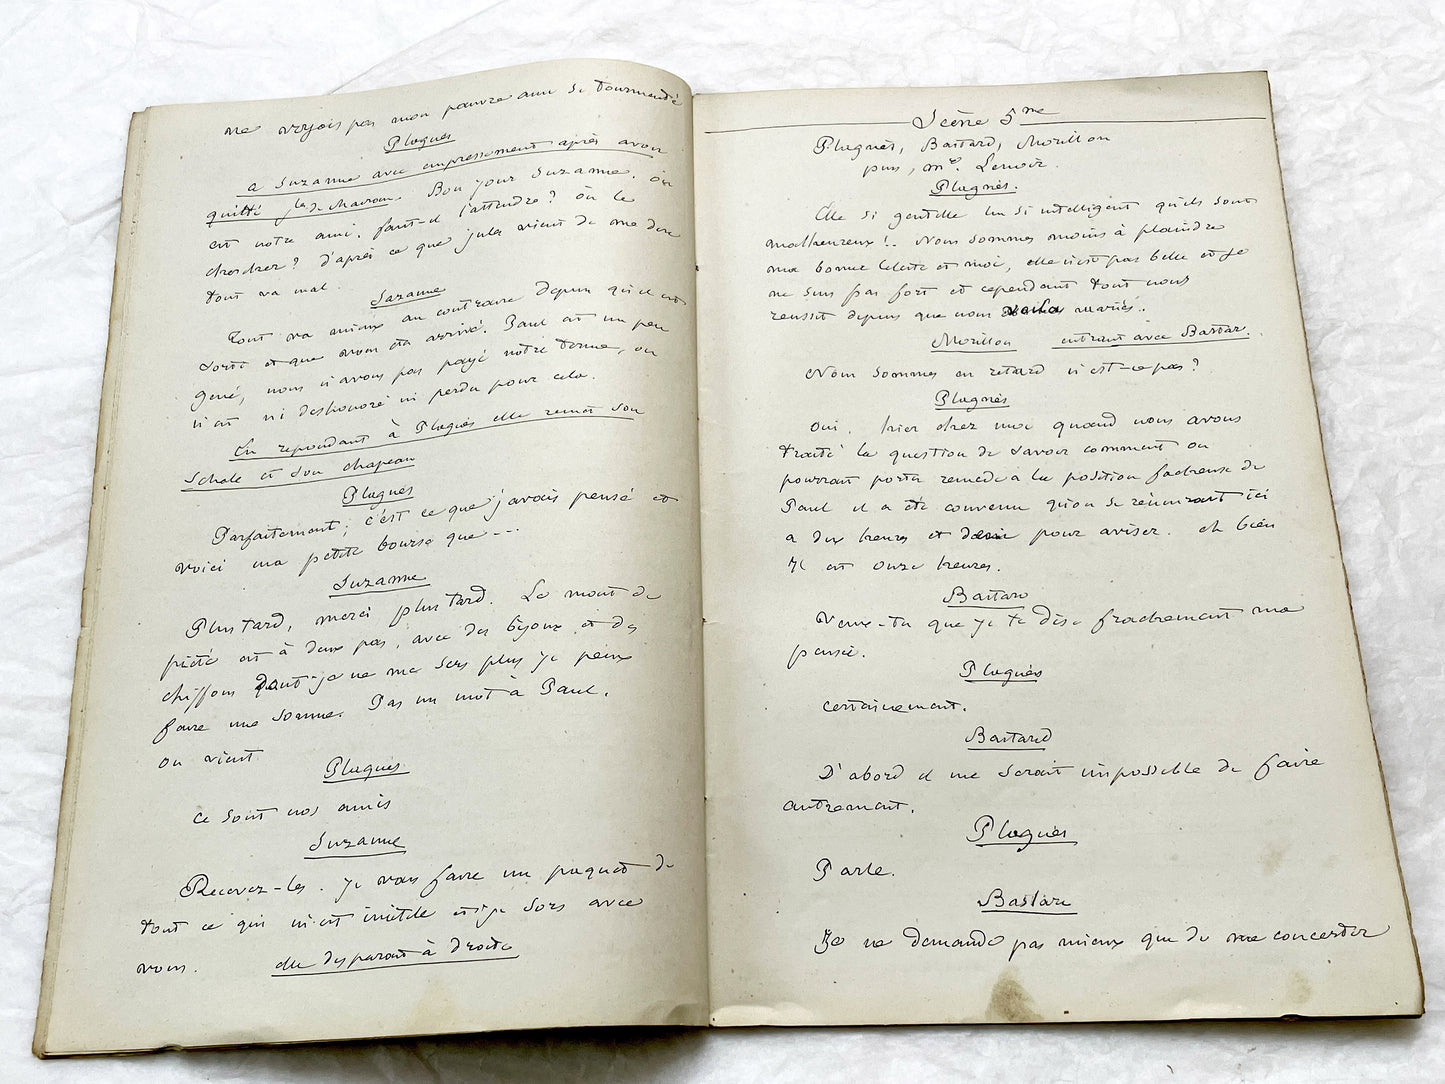 ne voyois pas mon pauvre ami si tourmenté
Plagnes
a Suzanne avec empressement après avoir
quitté
Bon jour Suzanne. où
est notre ami. faut-il l'attendre? où le
chercher? d'après ce que jula vient de me dire
tout va mal.
Suzanne
Tout va mieux au contraire depuis qu'il est
sorti et que vous êtes arrivé. Paul est un peu
gené, nous n'avons pas payé notre terme, on
n'est ni deshonoré ni perdu pour cela.
En repondant à Plagnès elle remet son
Schale et son chapeau
Plagnes
Parfaitement; c'est ce que j'avais pensé et
voici ma petite bourse que -..
Suzanne
Plus tard, merci plus tard. Le mont de
pieté est à deux pas, avec des bijoux et des
chiffons dont je ne me sers plus je peux
faire une somme. Pas un mot à Paul.
on vient
Plagnes
ce sont nos amis
Suzanne
Recevez-les. je vais faire un paquet de
tout ce qui m'est inutile et je sors avec
vous.
elle disparait à droite
Scène 5me
Plagnès, Bastard, Morillon
puis, Mr. Lenoir.
Plagnès.
Elle si gentille lui si intelligent qu'ils sont
malheureux!. Nous sommes moins à plaindre
ma bonne Celeste et moi, elle n'est pas belle et je
ne suis pas fort et cependant tout nous
reussit depuis que nous voilà mariés.
Morillon entrant avec Bastar.
Nous sommes en retard n'est-ce pas?
Plagnès
Oui. hier chez moi quand nous avons
traité la question de savoir comment on
pourrait porter remède à la position facheuse de
Paul il a été convenu qu'on se réunirait ici
a dix heures et demie pour aviser. eh bien
il est onze heures.
Bastard
Veux-tu que je te dise frachement ma
pensée.
Plagnès
certainement.
Bastard
D'abord il me serait impossible de faire
autrement.
Plagnès
Parle.
Bastard
Je ne demande pas mieux que de me concerter